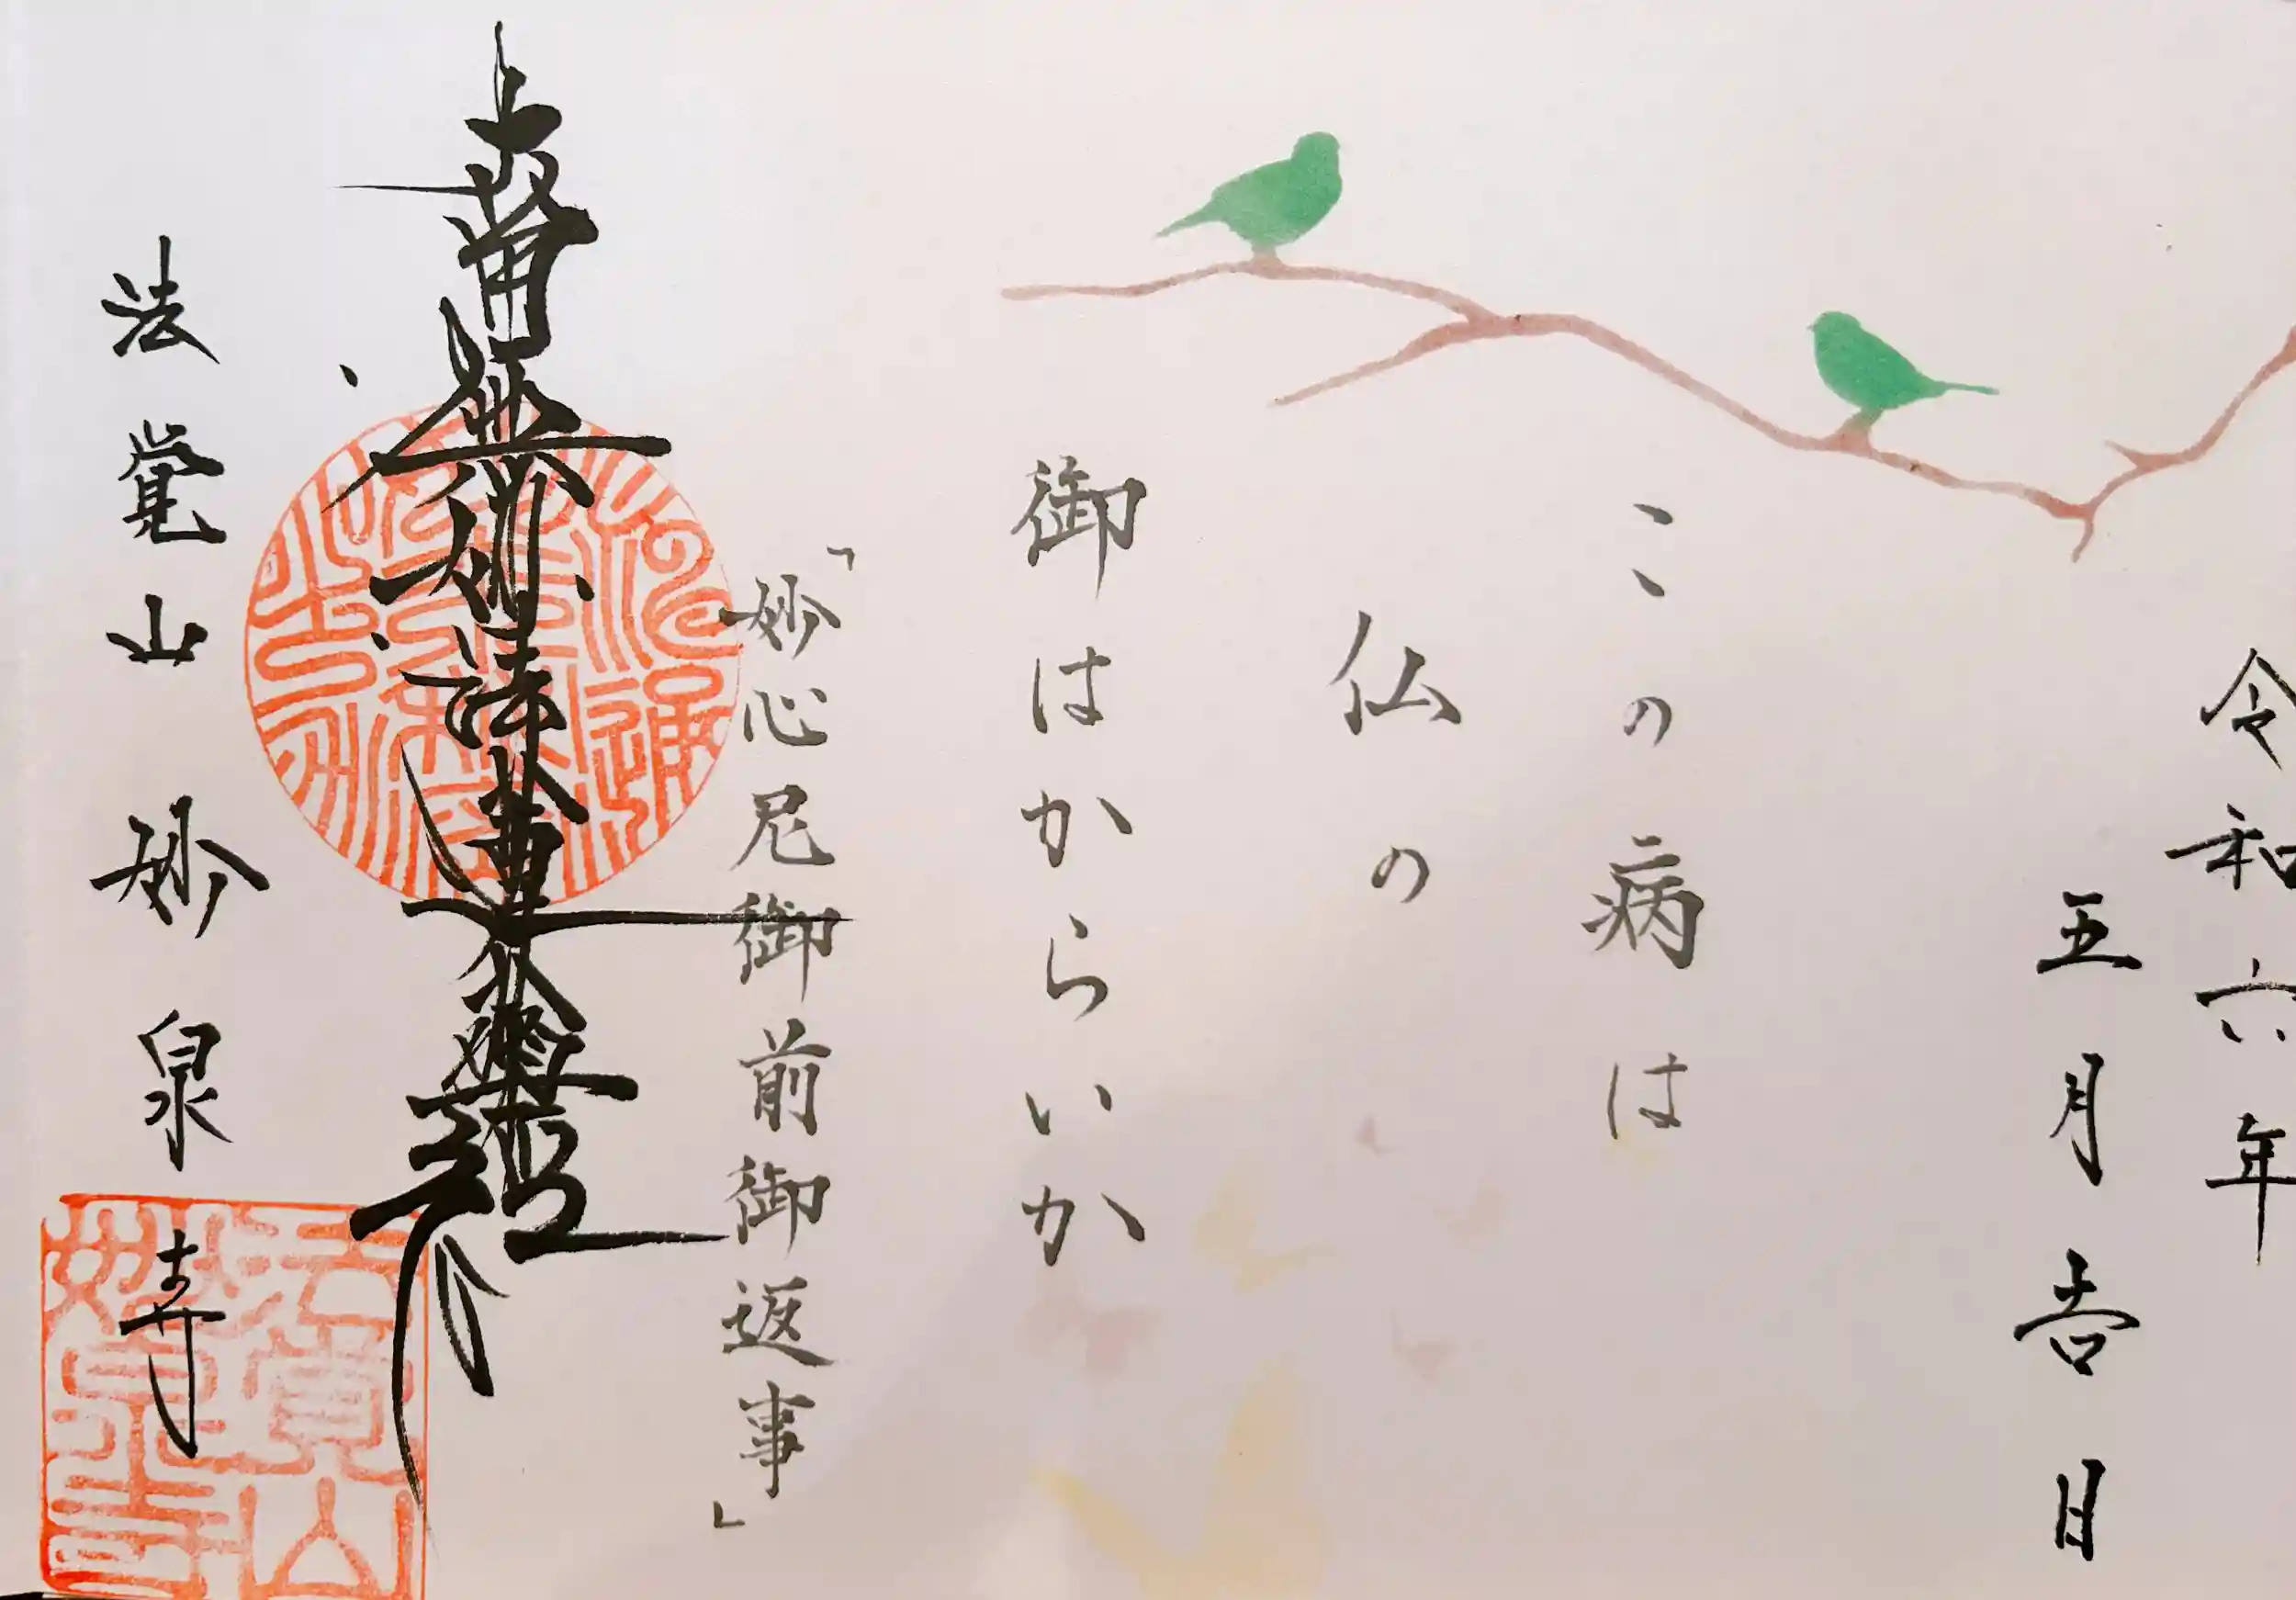 令和六年
五月吉日
この病は
仏の
御はからいか
「妙心尼御前御返事」
南無妙法蓮華経
法覚山 妙泉寺
法覺山
妙泉寺